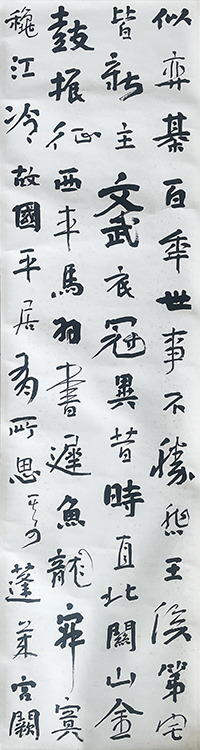 似弈棊百年世事不勝悲王侯第宅
皆新主文武衣冠異昔時直北關山金
鼓振征西車馬羽書遲魚龍寂寞
穐江冷故國平居有所思其蓬萊宮闕